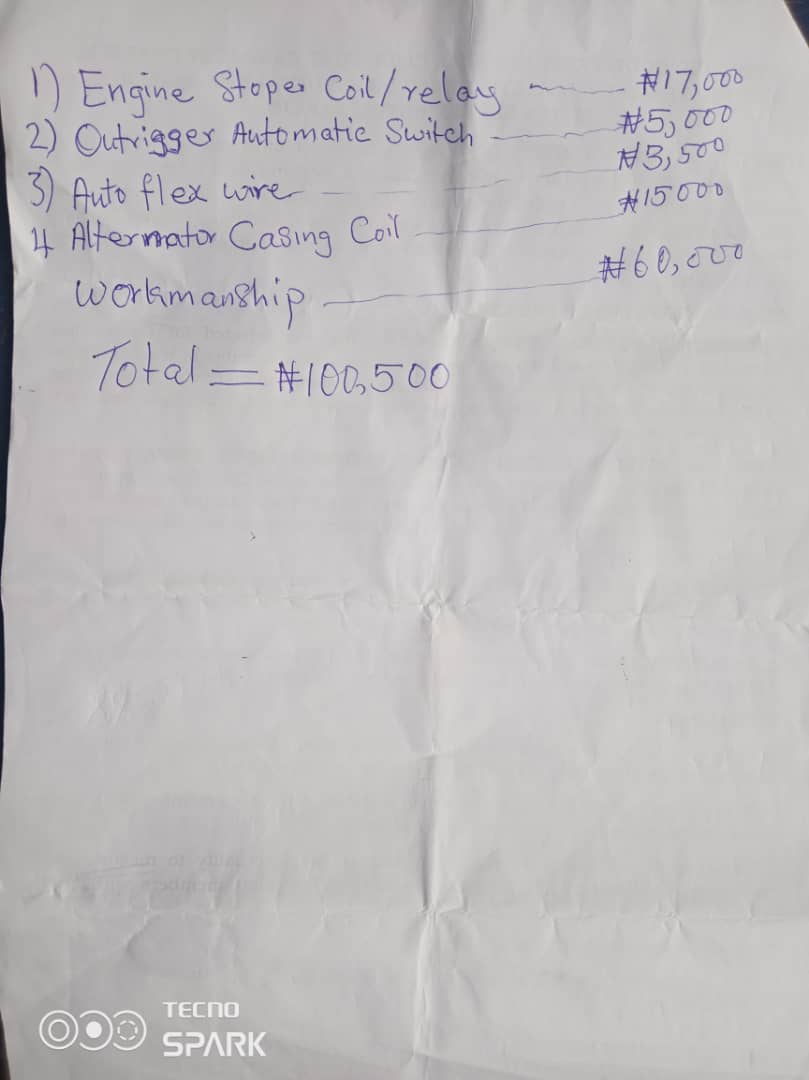 1) Engine Stoper Coil/relay ₦17,000
2) Outrigger Automatic Switch ₦5,000
3) Auto flex wire ₦3,500
4 Altermator Casing Coil ₦15000
Workmanship ₦60,000
Total = ₦100,500
TECNO
SPARK